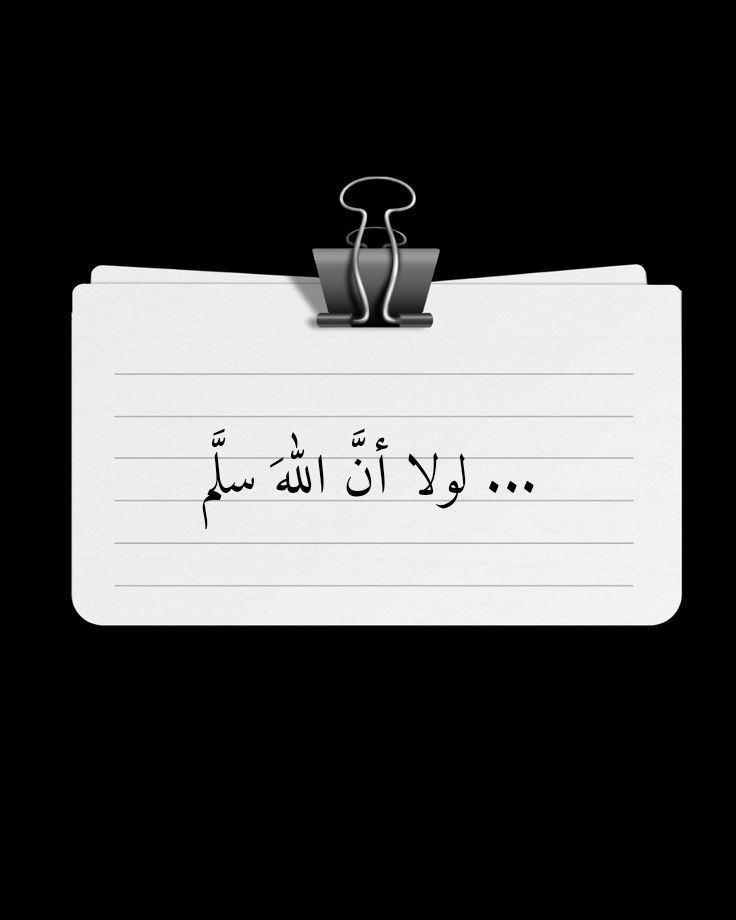 ... لولا أنَّ اللهَ سلَّم